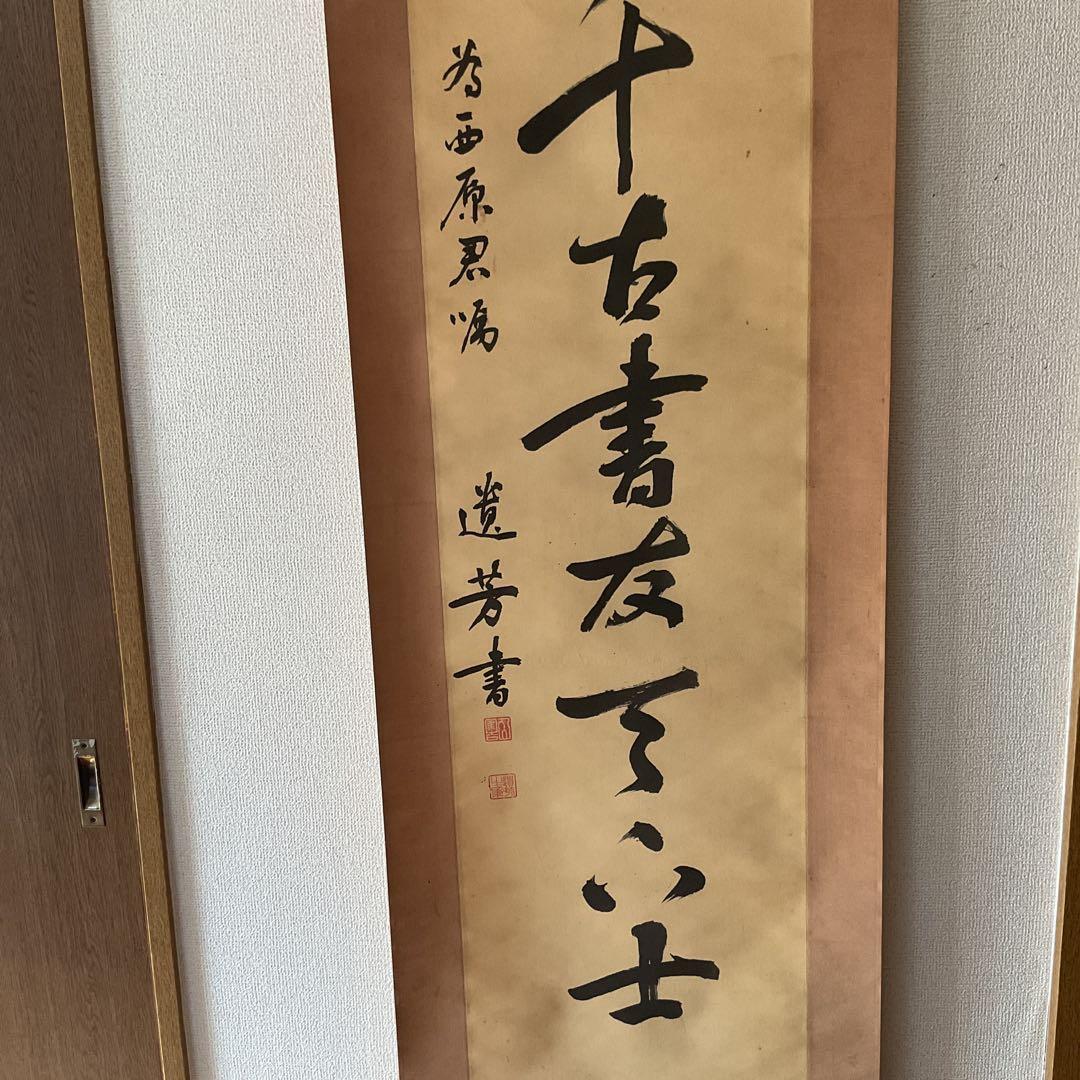 千古書友天下士
為西原君嘱
遺芳書